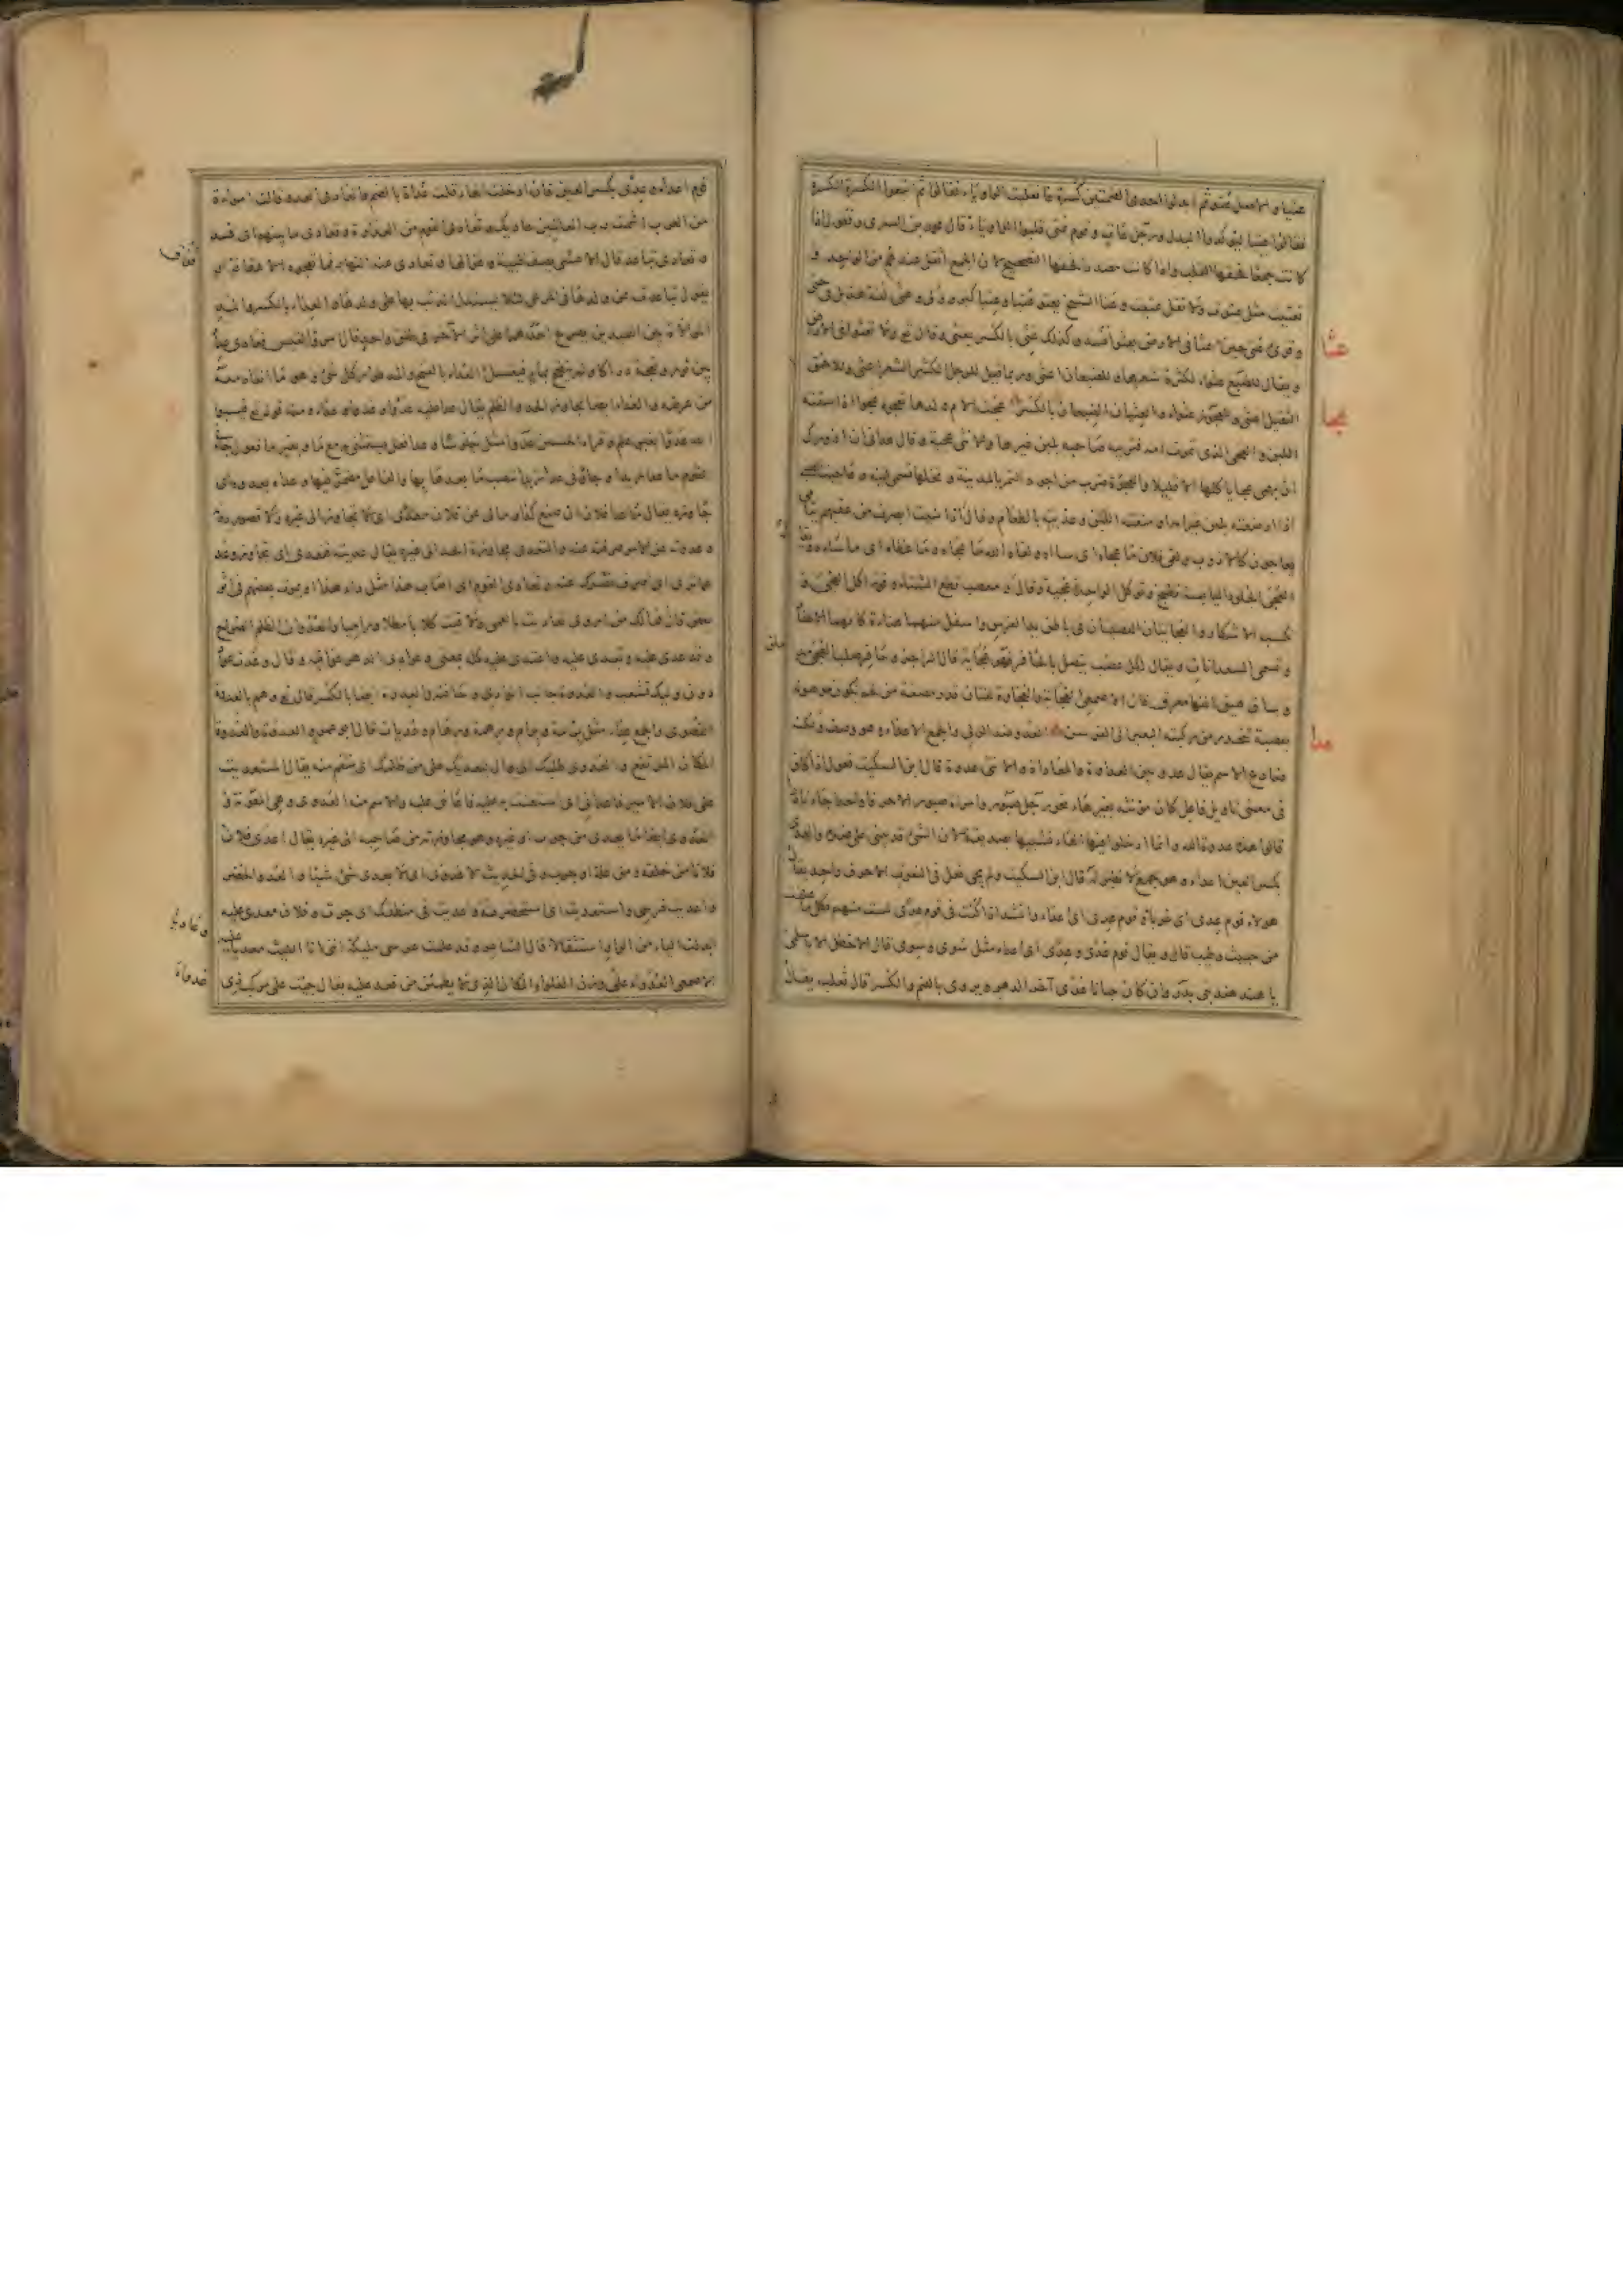 عتيا والاصل عتو ثم ابدلوا احدى الضمتين كسرة فانقلبت الواو ياء فقالوا ثم اتبعوا الكسرة الكسرة
فقالوا عتيا ليؤكدوا البدل ورجل عات وقوم عتى قلبوا الواو ياء قال محمد بن السرى وفعول اذا
كانت جمعا فحقها القلب واذا كانت مصدرا فحقها التصحيح لان الجمع اثقل عندهم من الواحد و
تعتيت مثل عتوت ولا تقل عتيت وعتا الشيخ يعتو عتيا وعتيا كبر وولى وعتى لغة هذيل فى حتى
وقرئ عتى حين
عثا
عثا فى الارض يعثوا افسد وكذلك عثى بالكسر يعثى وقال تع ولا تعثوا فى الارض
ويقال للضبع عثواء لكثرة شعرها وللضبعان اعثى وربما قيل للرجل الكثير الشعر اعثى وللاحمق
الثقيل اعثى وللعجوز عثواء والعثيان الضبعان بالكسر
عجا
عجت الام ولدها تعجوه عجوا اذا سقته
اللبن والعجى الذى تموت امه فيربيه صاحبه بلبن غيرها والانثى عجية وقال عدانى ان ازورك
ان بهمى عجايا كلها الا قليلا والعجوة ضرب من اجود التمر بالمدينة ونخلها تسمى لينة وعاجيت الصبى
اذا ارضعته بلبن غير امه او منعته اللبن وغذيته بالطعام وقال اذا شئت ابصرت من عقبهم يتامى
يعاجون كالاذؤب ولقى فلان ما عجاه اى ساءه ولقاه الله ما عجاه وما عظاه اى ما ساءه
العجى الجلود اليابسة تطبخ وتوكل الواحدة عجية وقال ومعصب قطع الشتاء وقوته اكل العجى و
تكسب الاشكاد والعجايتان العصبتان فى باطن يدى الفرس واسفل منهما هنات كانها الاظفار
وتسمى السعدانات ويقال لكل عصب يتصل بالحافر فهو عجاية قال الراجز وحافر صلب العجى مدملق
وساق هيق انفها معرق قال الاصمعى العجاية والعجاوة لغتان قدر مضغة من لحم تكون موصولة
بعصبة تنحدر من ركبة البعير الى الفرسن
عدا
العدو ضد الولى والجمع الاعداء وهو وصف ولكنه
ضارع الاسم يقال عدو بين العداوة والمعاداة والانثى عدوة قال ابن السكيت فعول اذا كان
فى معنى تاويل فاعل كان مونثه بغير هاء نحو رجل صبور وامراة صبور الا حرفا واحدا جاء نادرا
قالوا هذه عدوة الله وانما ادخلوا فيها الهاء تشبيها بصديقة لان الشئ قد يبنى على ضده والعدى
بكسر العين الاعداء وهو جمع لا نظير له قال ابن السكيت ولم يجئ فعل فى النعوت الا حرف واحد يقال
هولاء قوم عدى اى غرباء وقوم عدى اى اعداء وانشد اذا كنت فى قوم عدى لست منهم فكل ما علفت
من خبيث وطيب قال ويقال قوم عدى وعدى اى اعداء مثل سوى وسوى قال الاخطل الا يا اسلمى
يا هند هند بنى بدر وان كان حيانا عدى آخر الدهر ويروى بالضم والكسر قال ثعلب يقال
قوم اعداء وعدى بكسر العين فان ادخلت الهاء قلت عداة بالضم والعادى العدو قالت امراة
من العرب اشمت رب العالمين عاديك وتعادى القوم من العداوة وتعادى ما بينهم اى فسد
وتعادى تباعد قال الاعشى يصف ظبية وغزالها وتعادى عنه النهار فما تعجوه الا عفافة او
فواق
يقول تباعد عن ولدها فى المرعى لئلا يستدل الذئب بها على ولدها والعداء بالكسر والمد
الموالاة بين الصيدين يصرع احدهما على اثر الاخر فى طلق واحد قال امرؤ القيس فعادى عداء
بين ثور ونعجة دراكا ولم ينضح بماء فيغسل والعداء بالفتح والمد طوار كل شئ وهو ما انقاد معه
من عرضه والعداء ايضا تجاوز الحد والظلم يقال عدا عليه عدوا وعدوا وعداء ومنه قوله تع فيسبوا
الله عدوا بغير علم وقراء الحسن عدوا مثل جلوس وعدا فعل يستثنى به مع ما وبغير ما تقول جاءنى
القوم ما عدا زيدا وجاؤنى عدا زيدا تنصب ما بعدها بها والفاعل مضمر فيها وعداه يعدوه اى
جاوزه يقال ما عدا فلان ان صنع كذا ومالى عن فلان معدى اى لا تجاوز الى غيره ولا قصور دونه
وعدوته عن الامر صرفته عنه والتعدى مجاوزة الشئ الى غيره يقال عديته فتعدى اى تجاوز وعد
عما ترى اى اصرف بصرك عنه وتعادى القوم اى اصاب هذا مثل داء هذا او يموت بعضهم فى اثر
بعض قال فمالك من اروى تعاديت بالعمى ولاقيت كلابا مطلا وراميا والعدوان الظلم الصراح
وقد عدى عليه وتعدى عليه واعتدى عليه كله بمعنى وعوادى الدهر عوائقه وقال وعدت عواد
دون وليك تشعب والعدوة جانب الوادى وحافته والعدوة ايضا بالكسر قال تع وهم بالعدوة
القصوى والجمع عداء مثل برمة وبرام ورهمة ورهام وعديات قال ابو عمرو العدوة والعدوة
المكان المرتفع والعدوى طلبك الى وال ليعديك على من ظلمك اى ينتقم منه يقال استعديت
على فلان الامير فاعدانى اى استعنت به عليه فاعاننى عليه والاسم منه العدوى وهى المعونة و
العدوى ايضا ما يعدى من جرب او غيره وهو مجاوزته من صاحبه الى غيره يقال اعدى فلان
فلانا من خلقه او من علة او جرب وفى الحديث لا عدوى اى لا يعدى شئ شيئا والعدو الحضر
واعديت فرسى واستعديته اى استحضرته واعديت فى منطقك اى جرت وفلان معدى عليه
ابدلت الياء من الواو استثقالا قال الشاعر وقد علمت عرسى مليكة اننى انا الليث معديا عليه
وعاديا
الاصمعى العدواء على وزن الغلواء المكان الذى لا يطمئن من قعد عليه يقال جئت على مركب ذى
عدواء